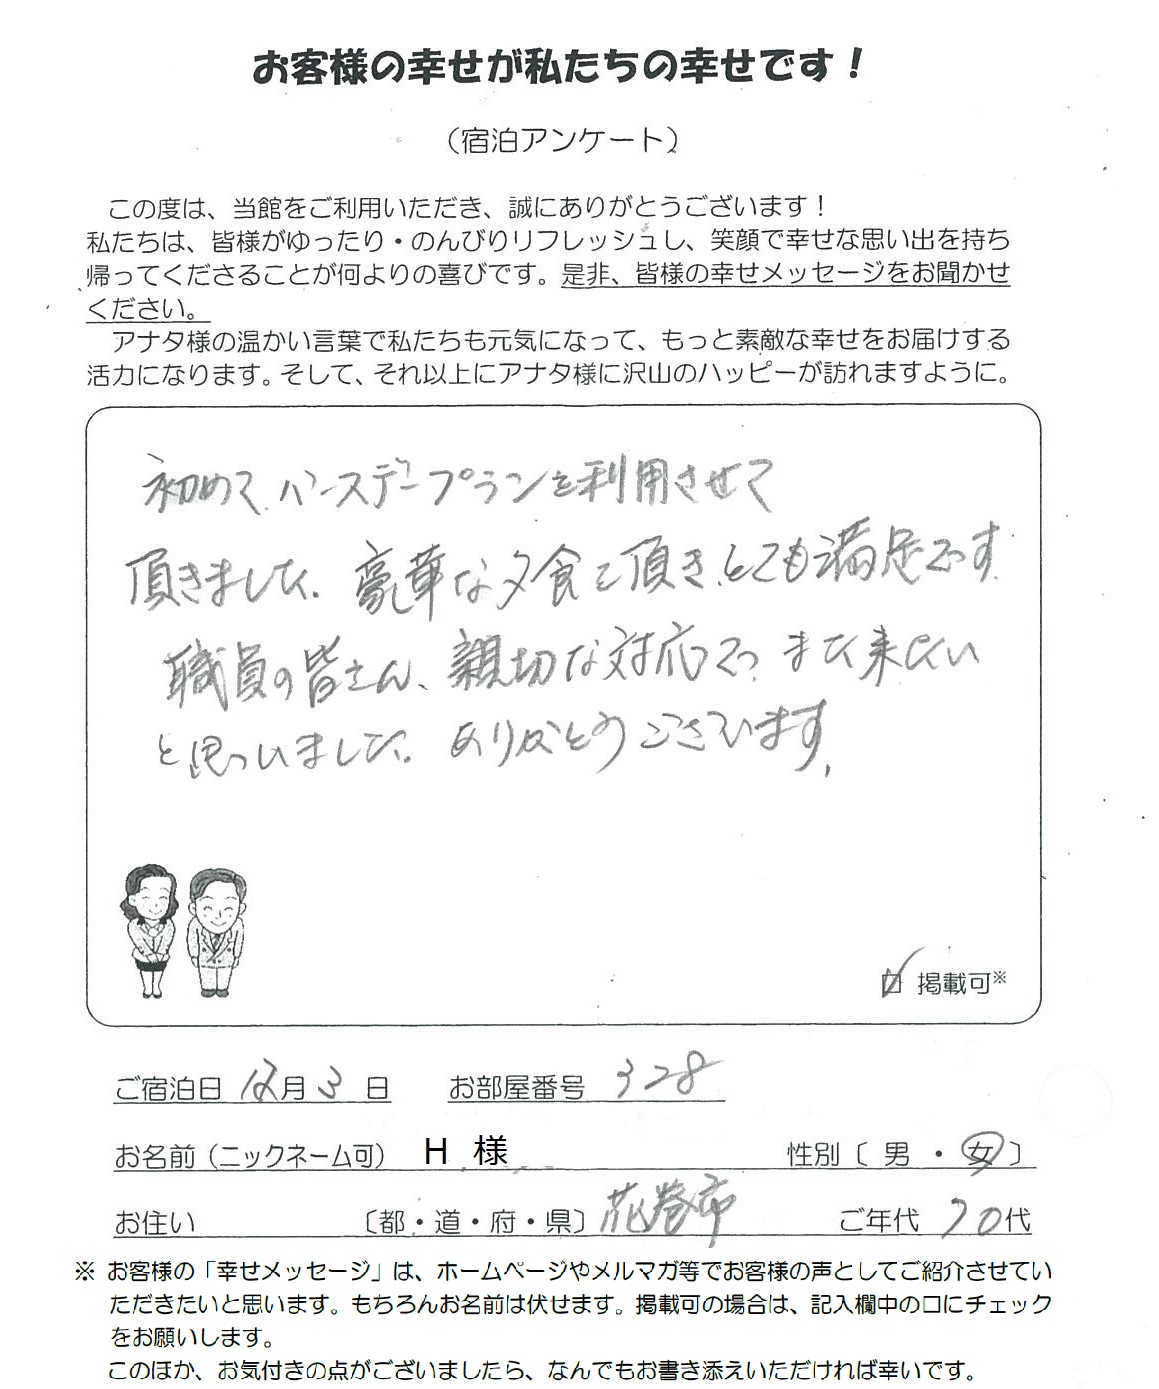 お客様の幸せが私たちの幸せです！
（宿泊アンケート）
この度は、当館をご利用いただき、誠にありがとうございます！
私たちは、皆様がゆったり・のんびりリフレッシュし、笑顔で幸せな思い出を持ち
帰ってくださることが何よりの喜びです。是非、皆様の幸せメッセージをお聞かせ
ください。
アナタ様の温かい言葉で私たちも元気になって、もっと素敵な幸せをお届けする
活力になります。そして、それ以上にアナタ様に沢山のハッピーが訪れますように。
初めて、バースデープランを利用させて
頂きました。豪華な夕食を頂き、とても満足です。
職員の皆さん、親切な対応で、また来たい
と思いました。ありがとうございます。
☑ 掲載可※
ご宿泊日 12月 3 日 お部屋番号 328
お名前（ニックネーム可） H 様 性別〔 男 ・ 女 〕
お住い 〔都・道・府・県〕花巻市 ご年代 70代
※ お客様の「幸せメッセージ」は、ホームページやメルマガ等でお客様の声としてご紹介させてい
ただきたいと思います。もちろんお名前は伏せます。掲載可の場合は、記入欄中の口にチェック
をお願いします。
このほか、お気付きの点がございましたら、なんでもお書き添えいただければ幸いです。